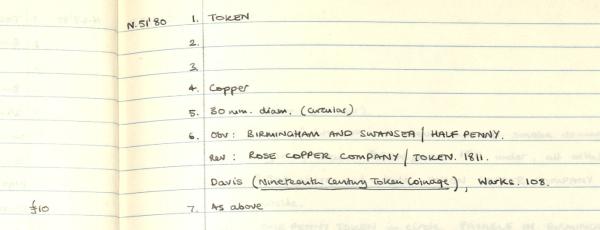 N.51'80 1. TOKEN
2.
3
4. Copper
5. 30 mm. diam. (circular)
6. Obv: BIRMINGHAM AND SWANSEA / HALF PENNY.
Rev: ROSE COPPER COMPANY / TOKEN. 1811.
Davis (Nineteenth Century Token Coinage), Warks. 108.
£10 7. As above